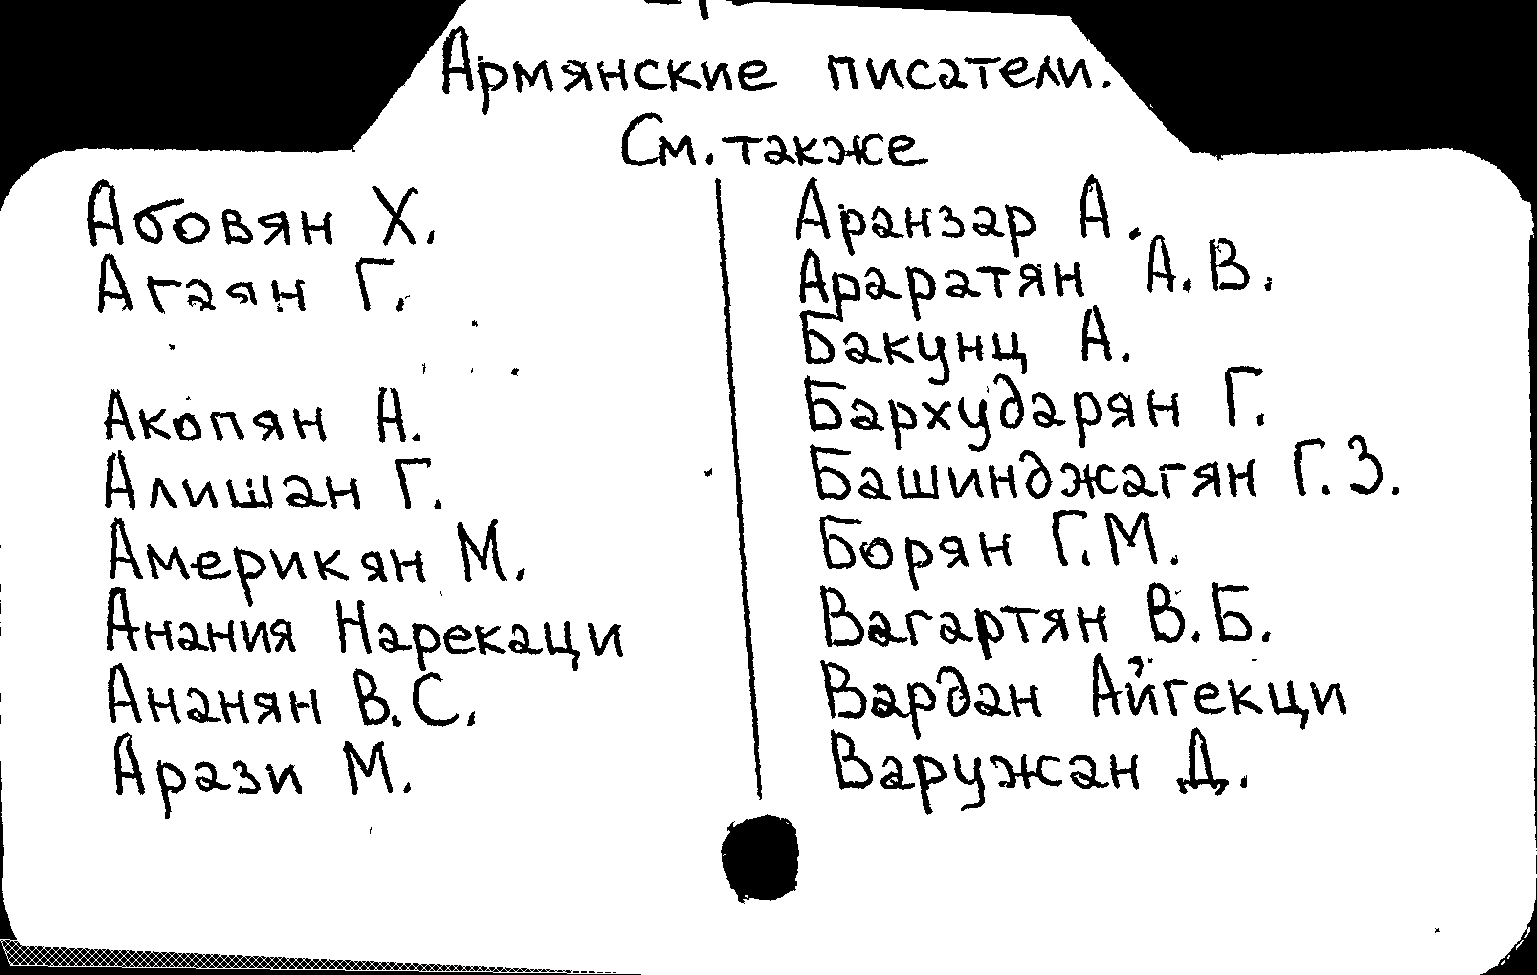 Армянские писатели.
См. также
Абовян Х.
Агаян Г.
Акопян А.
Алишан Г.
Америкян М.
Анания Нарекаци
Ананян В.С.
Арази М.
Аранзар А.
Араратян А.В.
Бакунц А.
Бархударян Г.
Башинджагян Г.З.
Борян Г.М.
Вагартян В.Б.
Вардан Айгекци
Варужан Д.